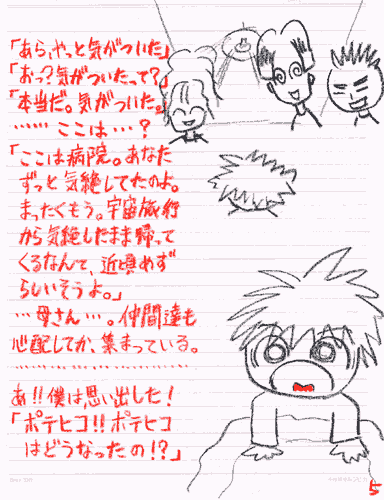 「あら、やっと気がついた」
「おっ?気がついたって?」
「本当だ。気がついた。
……ここは…?
「ここは病院。あなた
ずっと気絶してたのよ。
まったくもう。宇宙旅行
から気絶したまま帰って
くるなんて、近頃めず
らしいそうよ。」
…母さん…。仲間達も
心配してか、集まっている。
……………………
あ!!僕は思い出した!
「ポテヒコ!!ポテヒコ
はどうなったの!?」
5